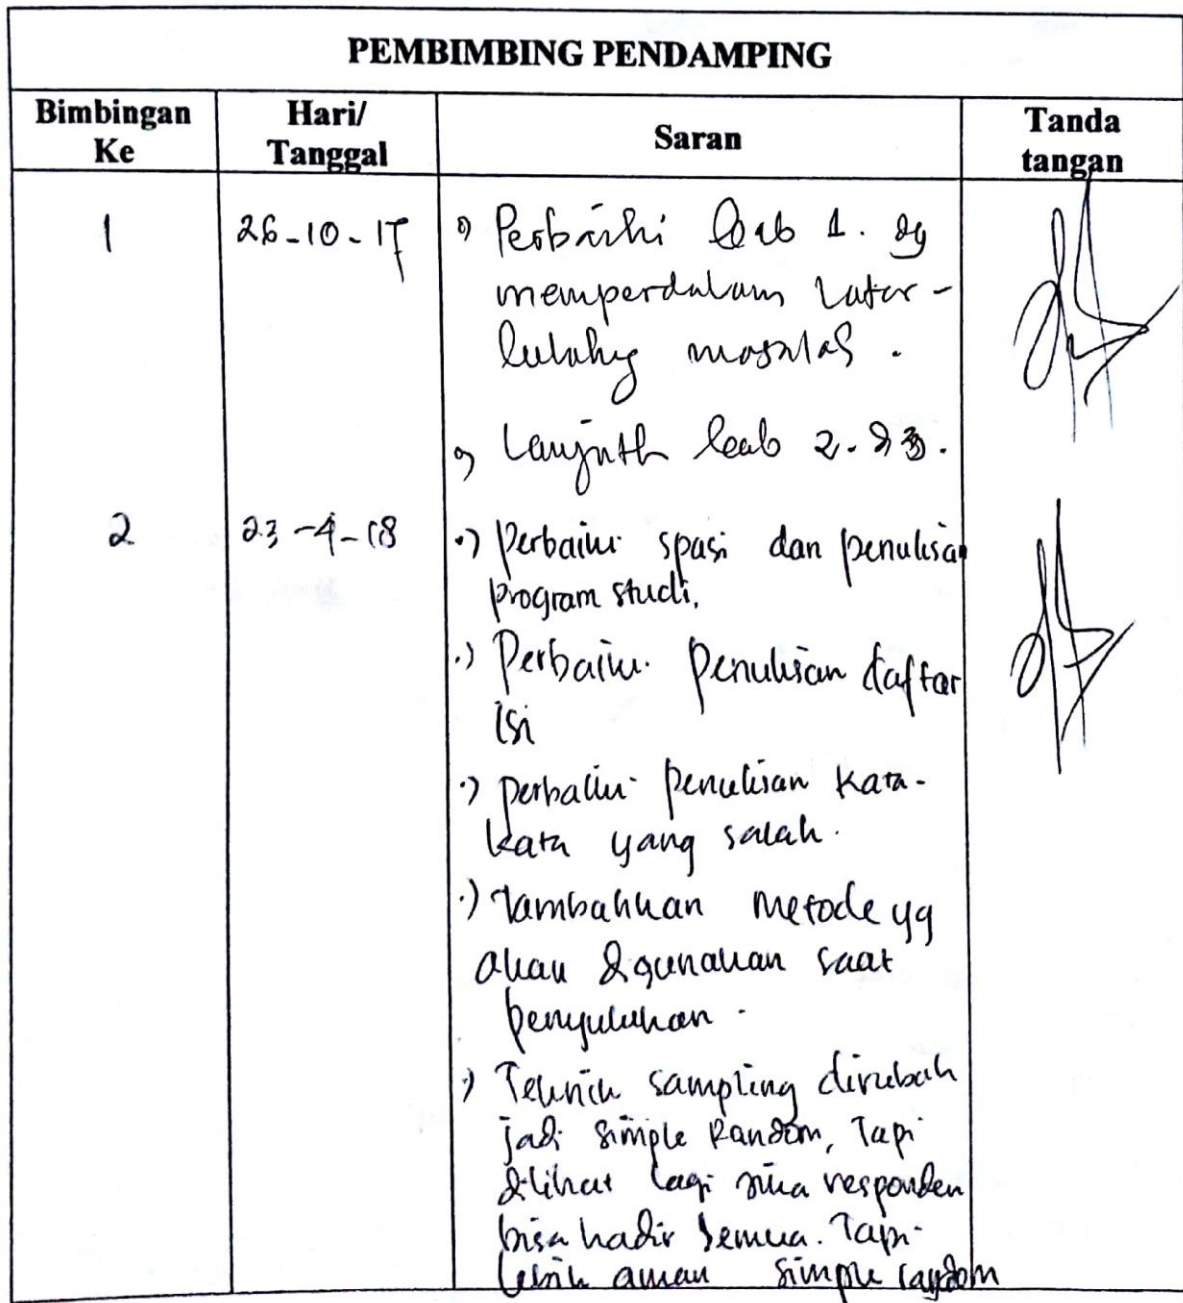 PEMBIMBING PENDAMPING
Bimbingan Ke
Hari/ Tanggal
Saran
Tanda tangan
1
26-10-17
•) Perbaiki bab 1. dg
memperdalam latar-
belakang masalah.
•) Lanjutk bab 2. & 3.
2
23-4-18
•) Perbaiki spasi dan penulisan
program studi.
•) Perbaiki penulisan daftar
isi
•) perbaiki penulisan kata-
kata yang salah.
•) Tambahkan metode yg
akan digunakan saat
penyuluhan.
•) Teknik sampling dirubah
jadi simple Random, Tapi
dilihat lagi jika responden
bisa hadir semua. Tapi
lebih aman simple random